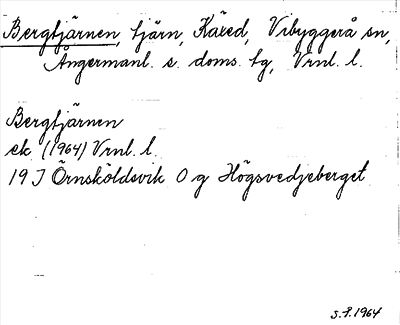 Bergtjärnen, tjärn, Käxed, Vibyggerå sn,
Ångermanl. s. doms. tg, Vrnl. l.
Bergtjärnen
ek. (1964) Vrnl. l.
19 J Örnsköldsvik O g Högsvedjeberget
S.F. 1964